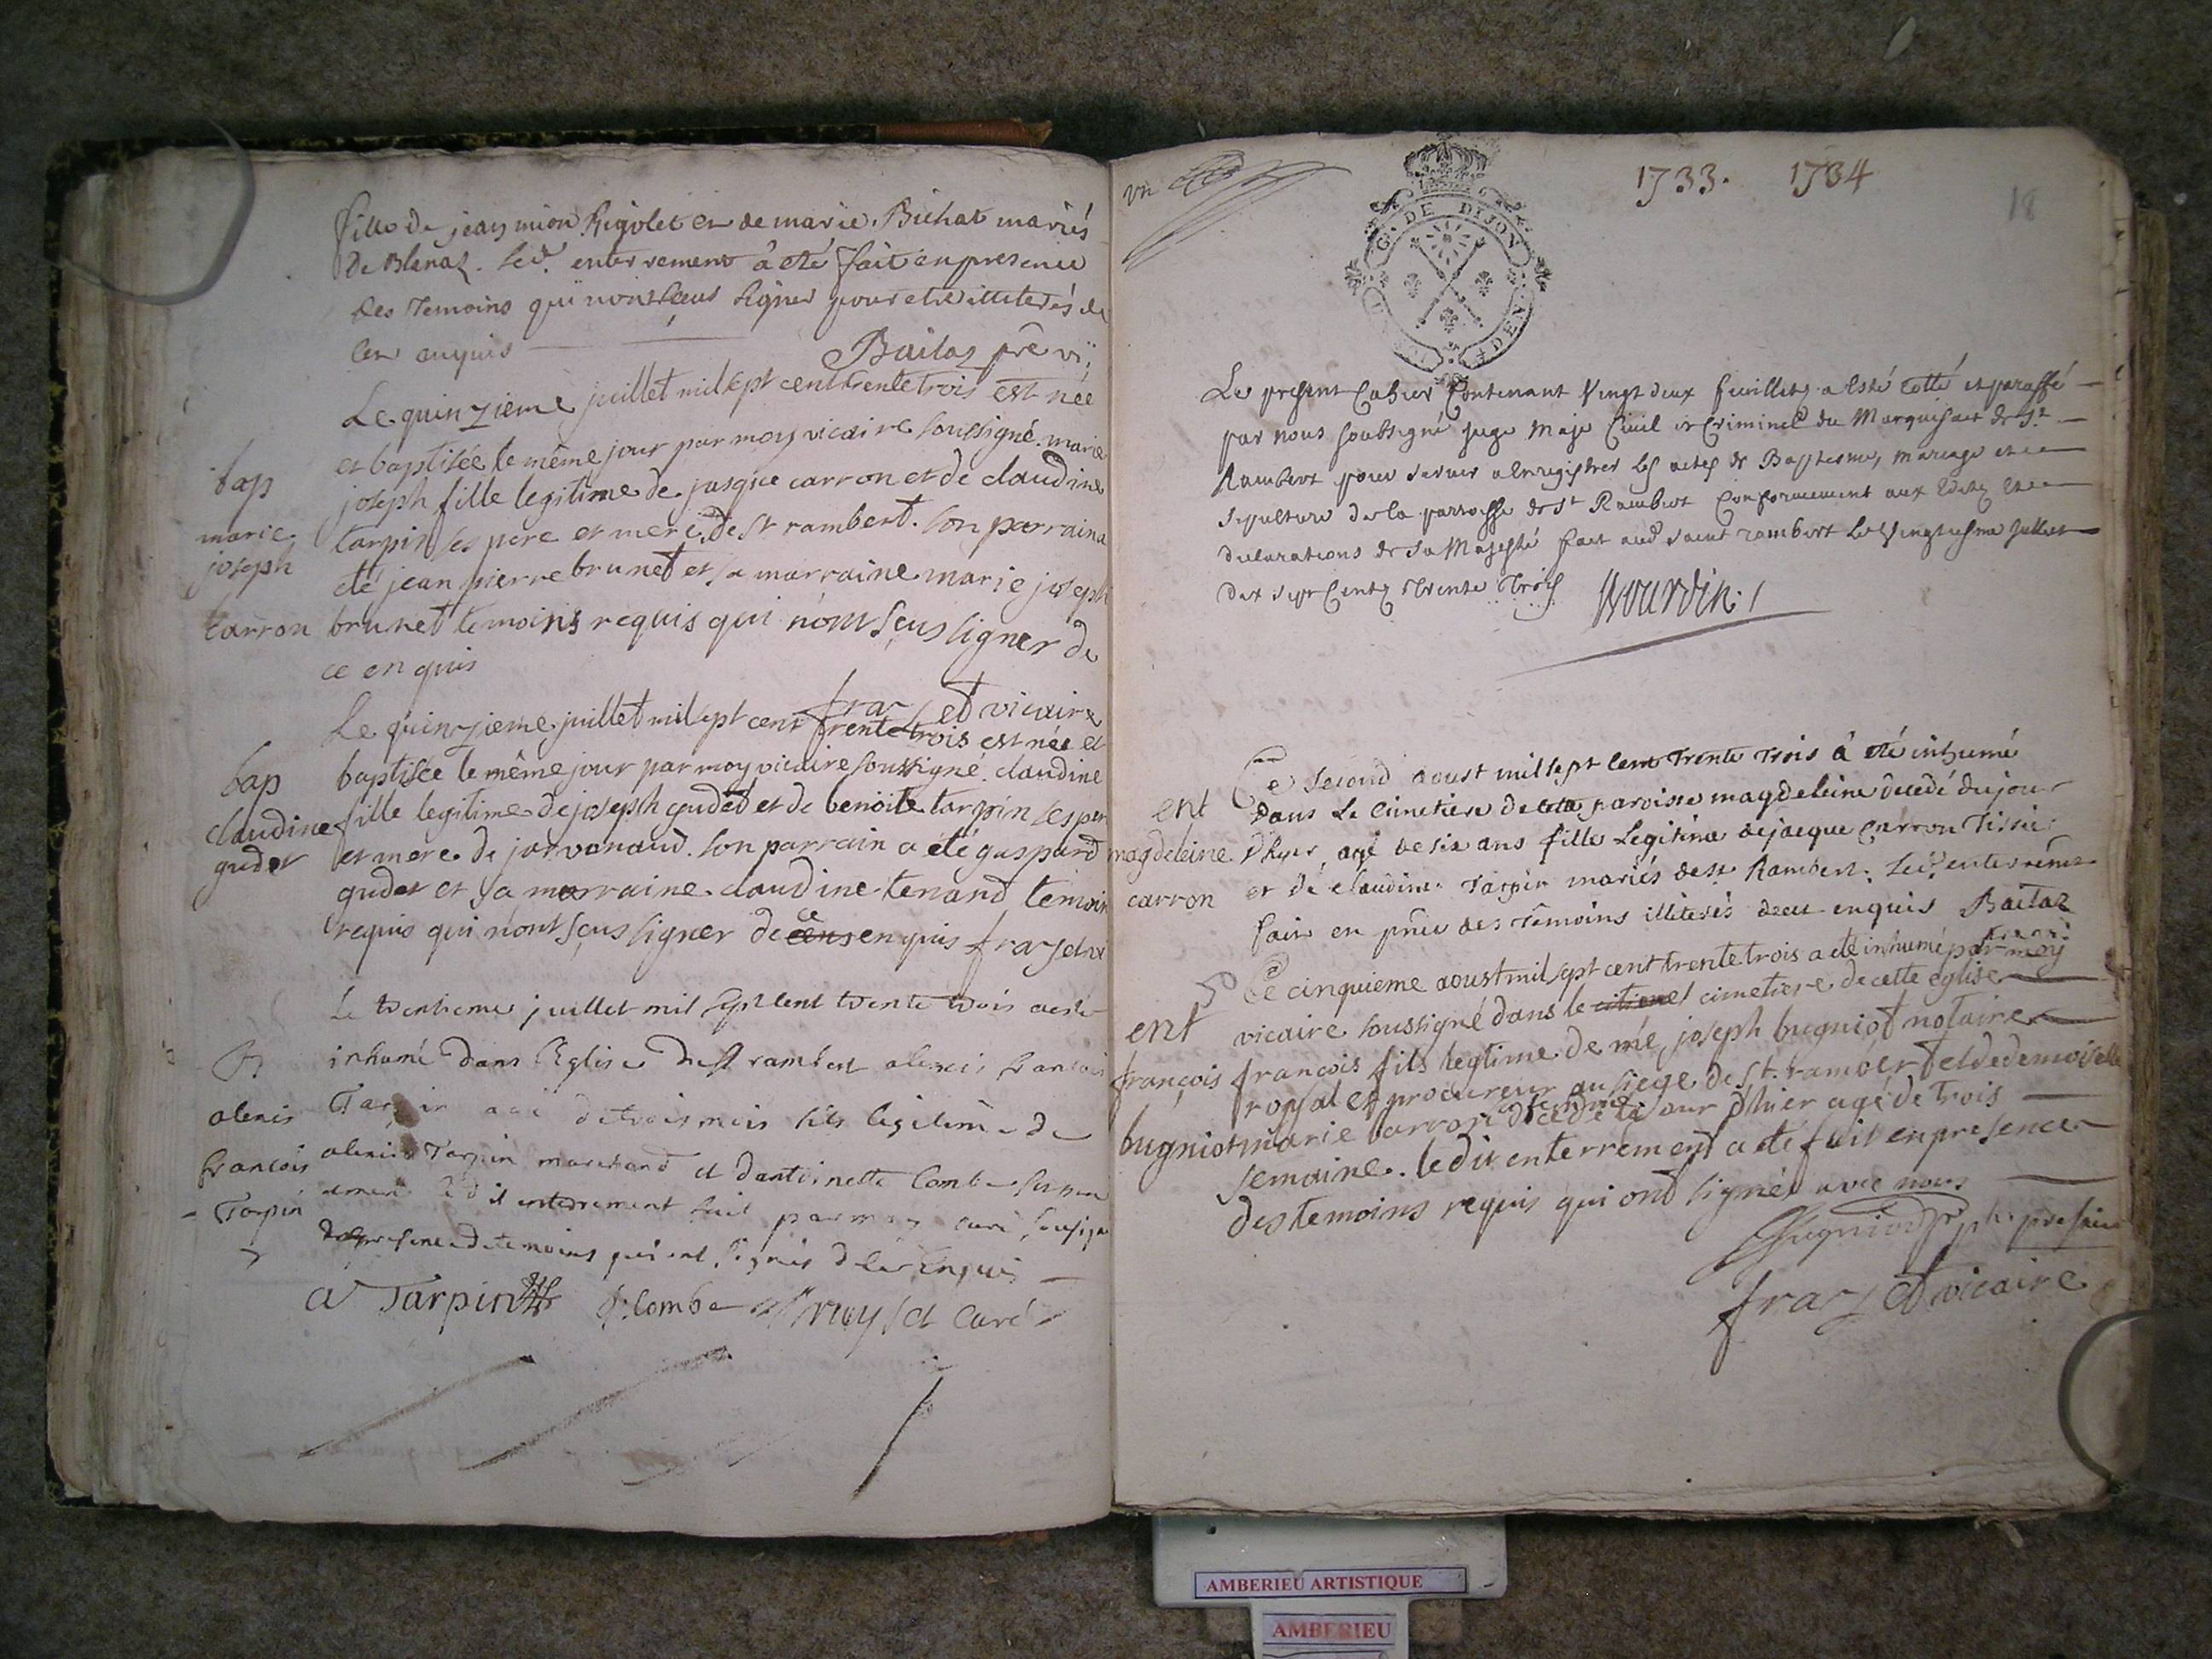 fille de jean mion Rigolet et de marie Bichat mariés
de Blanaz. led. enterrement â eté fait en presence
des temoins qui n'ont sceus signer pour etre illiterés de
ce enquis
Baitaz prê vi.
Le quinzieme juillet mil sept cent trente trois est née
et baptisée le même jour par moy vicaire soussigné marie
joseph fille legitime de jasque carron et de claudine
tarpin ses pere et mere de st rambert. son parrain a
eté jean pierre brunet et sa marraine marie joseph
brunet temoins requis qui n'ont sçus signer de
ce en quis
bap
marie
joseph
Carron
fraset vicaire
Le quinzieme juillet mil sept cent trente trois est née et
baptisée le même jour par moy vicaire soussigné claudine
fille legitime de joseph gudet et de benoite tarpin ses per
et mere de javornaud. son parrain a eté guspard
gudet et sa marraine claudine tenand temoin
requis qui n'ont sçus signer de ce enquis fraset vi
bap
claudine
gudet
Le trentieme juillet mil sept cent trente trois a esté
inhumé dans l'Eglise de st rambert alexis francois
Tarpin agé de trois mois fils legitime de
alexis Tarpin marchand et d'antoinette Combe ses pere
et mere led it enterrement fait par moy curé sousigné
presence de temoins qui ont signés de ce enquis
alexis
francois
Tarpin
a Tarpin Combe ruyset Curé
vn
1733. 1734
18
G. DE DIJON
Le present Cahier Contenant Vingt deux feuillets a esté cotté et paraffé
par nous soubsigné juge Maje Civil et Criminel du Marquisact de St
Rambert pour servir a Enregistrer les actes de Baptesme, Mariage et
sepulture de la parroisse de St Rambert Conformement aux Edits et
declarations de sa Majesté fait aud saint rambert le Vingtiesme Juillet
dix sept Cents Trente Trois
Ce second aoust mil sept cent trente trois â eté inhumé
dans Le cimetiere de cette paroisse magdeleine decedé du jour
d'hyer, agé de six ans fille Legitime de jacque Carron Tissier
et de Claudine Tarpin mariés de st Rambert. led. enterreme
fait en pñce des témoins illiterés de ce enquis Baitaz
ent
magdeleine
carron
Ce cinquieme aoust mil sept cent trente trois a eté inhumé par moy
vicaire soussigné dans le cimetiere de cette eglise
françois fils legtime de me joseph bugniot notaire
royal et procureur au siege de st. rambert et de demoiselle
marie carron decedé la jour d'hier agé de trois
semaine. ledit enterrement a eté fait en presence
des temoins requis qui ont signés avec nous
ent
françois
bugniot
Bugniod
fraset vicaire
AMBERIEU ARTISTIQUE
AMBERIEU